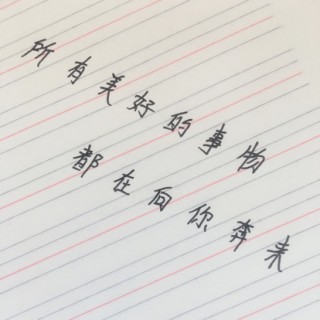 所有美好的事物
都在向你奔来